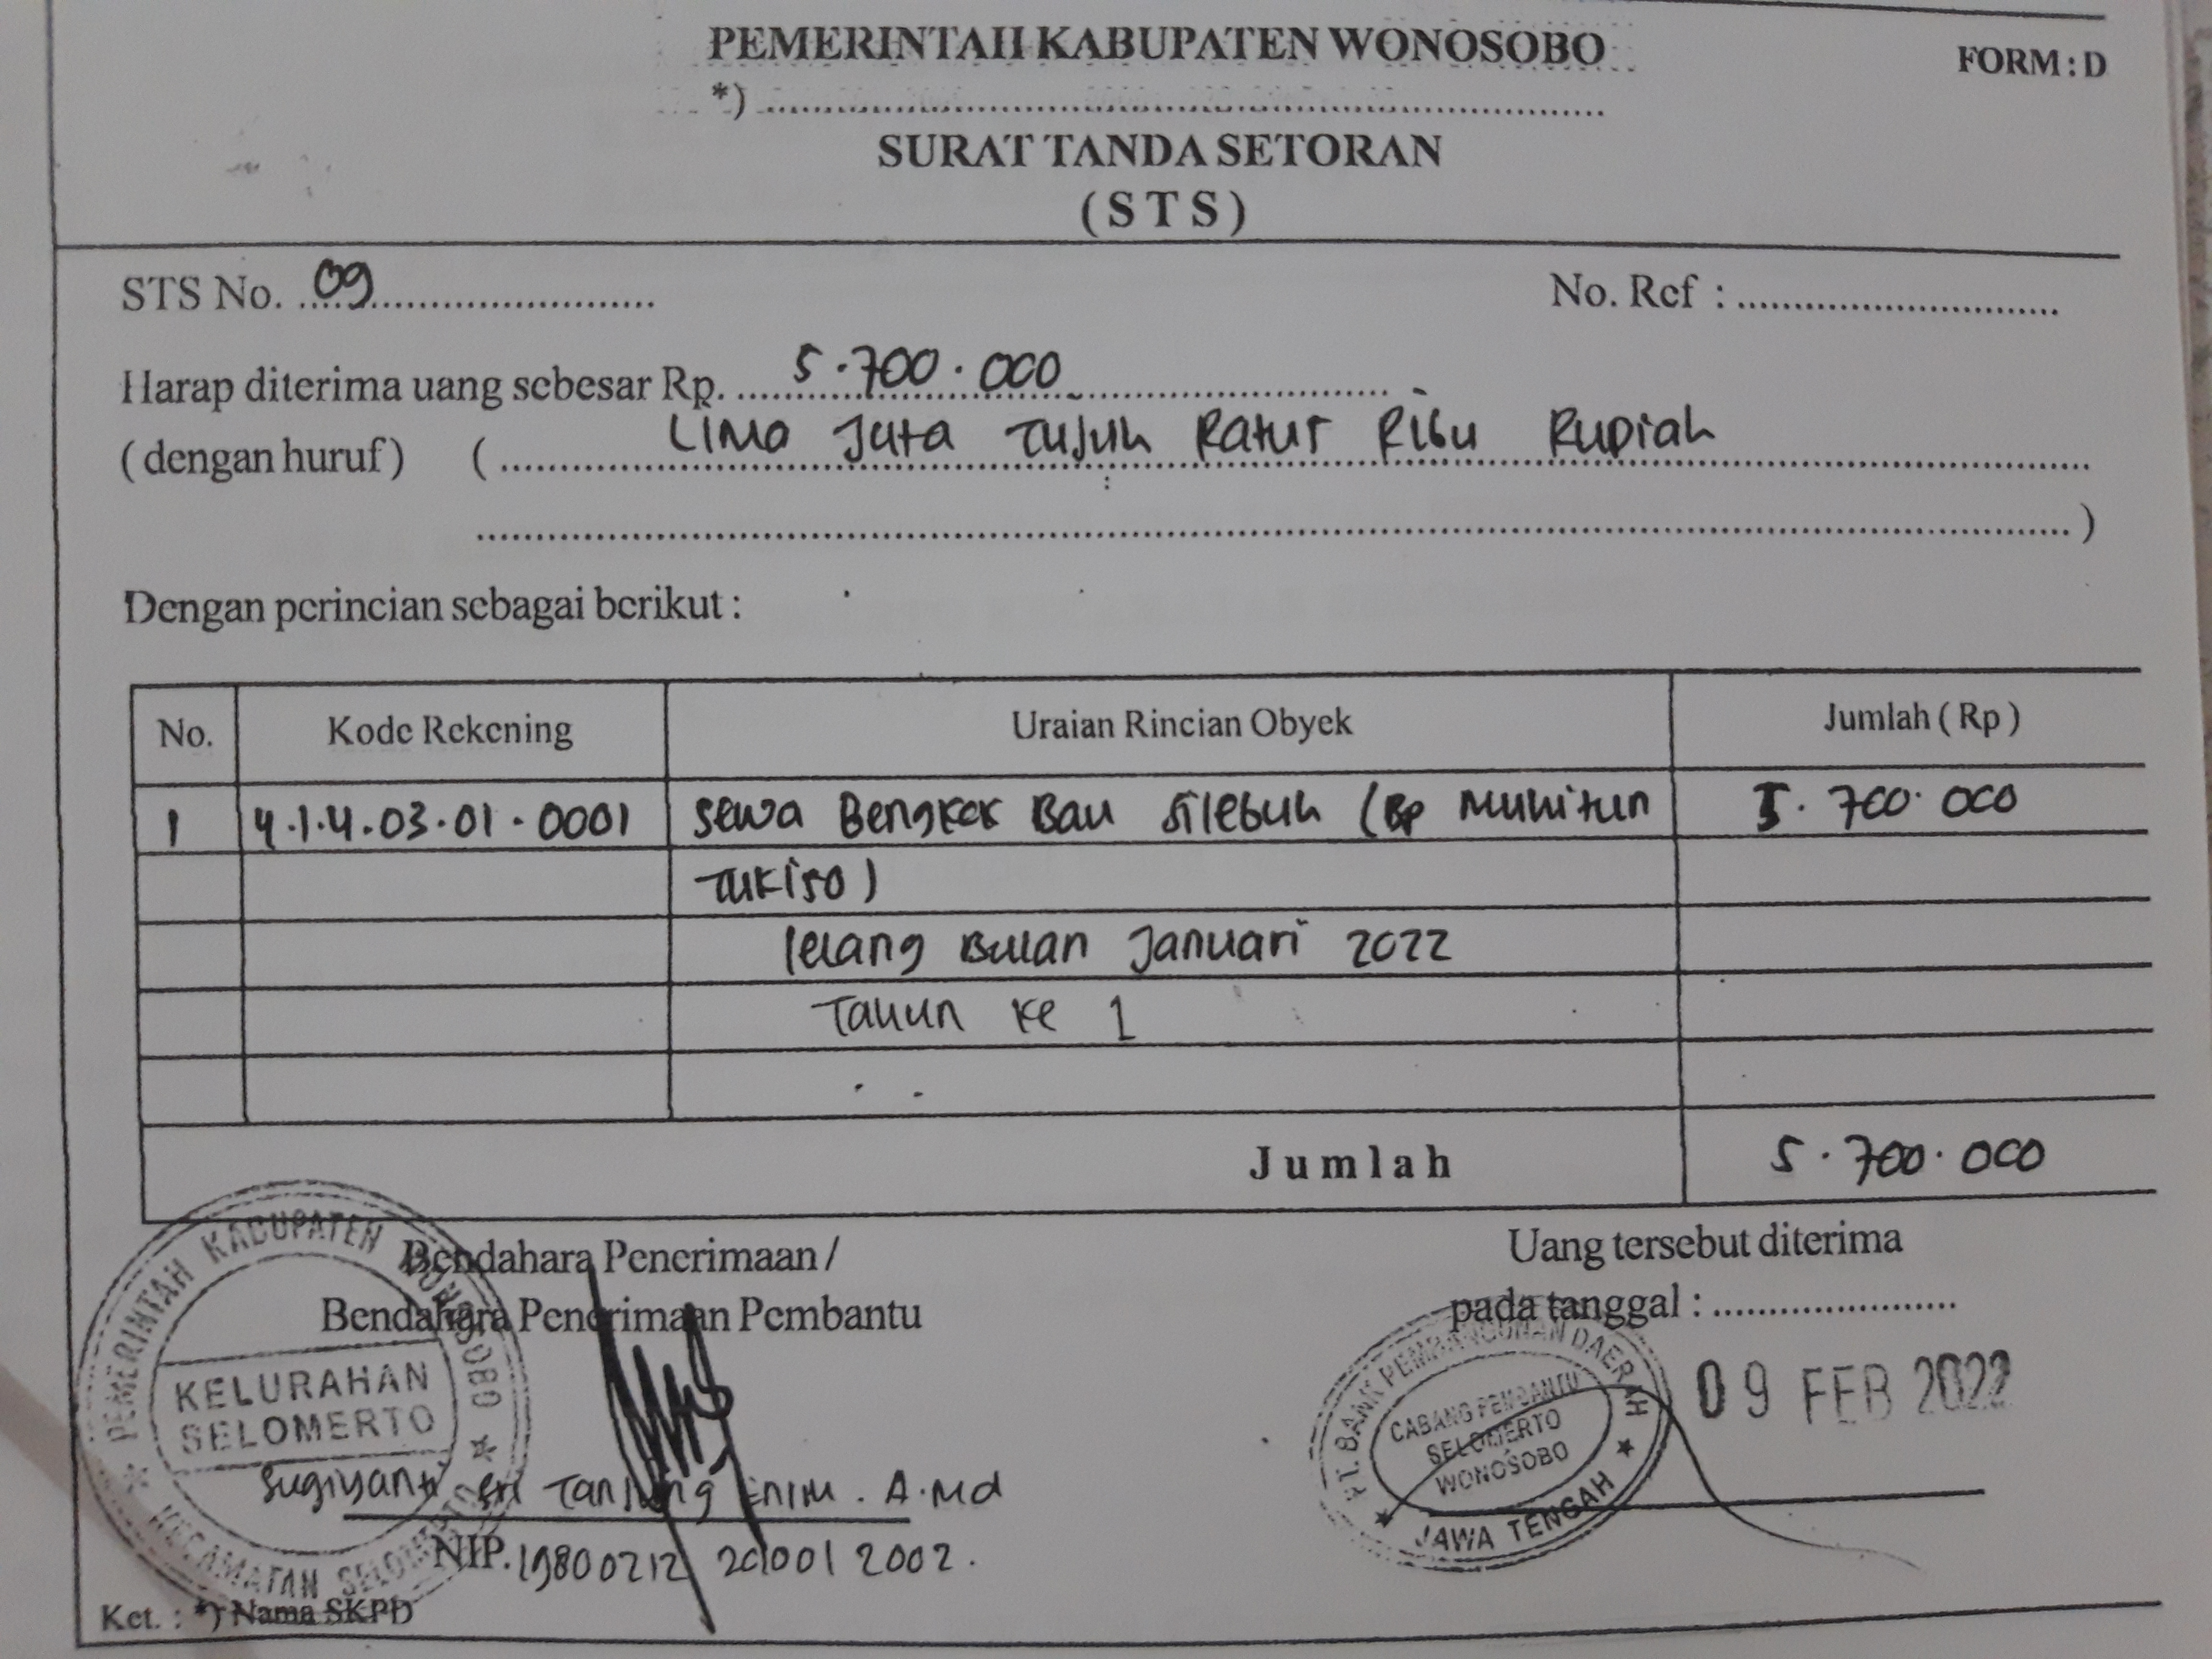 PEMERINTAH KABUPATEN WONOSOBO
FORM : D
*) ........................................
SURAT TANDA SETORAN
( S T S )
STS No. 09
No. Ref : ........................................
Harap diterima uang sebesar Rp. 5.700.000
( dengan huruf ) ( Lima Juta Tujuh Ratus Ribu Rupiah
........................................ )
Dengan perincian sebagai berikut :
No. Kode Rekening Uraian Rincian Obyek Jumlah ( Rp )
1 4.1.4.03.01.0001 Sewa Bengkok Bau Silebuh (Bp Muhitun 5.700.000
Tukiso)
lelang Bulan Januari 2022
Tahun ke 1
Jumlah 5.700.000
Bendahara Penerimaan /
Bendahara Penerimaan Pembantu
Uang tersebut diterima
pada tanggal : ......................
09 FEB 2022
PEMERINTAH KABUPATEN WONOSOBO
KELURAHAN
SELOMERTO
KECAMATAN SELOMERTO
PT. BANK PEMBANGUNAN DAERAH
CABANG PEMBANTU
SELOMERTO
WONOSOBO
JAWA TENGAH
Sugiyanti Sri Tanjung Enim. A.Md
NIP. 19800212 201001 2002.
Ket. : *) Nama SKPD